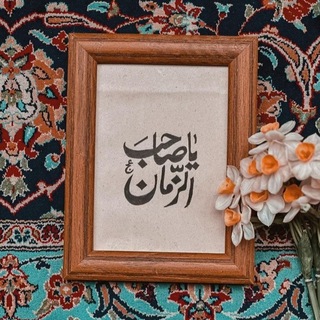 یا صاحب
الزّمان ع